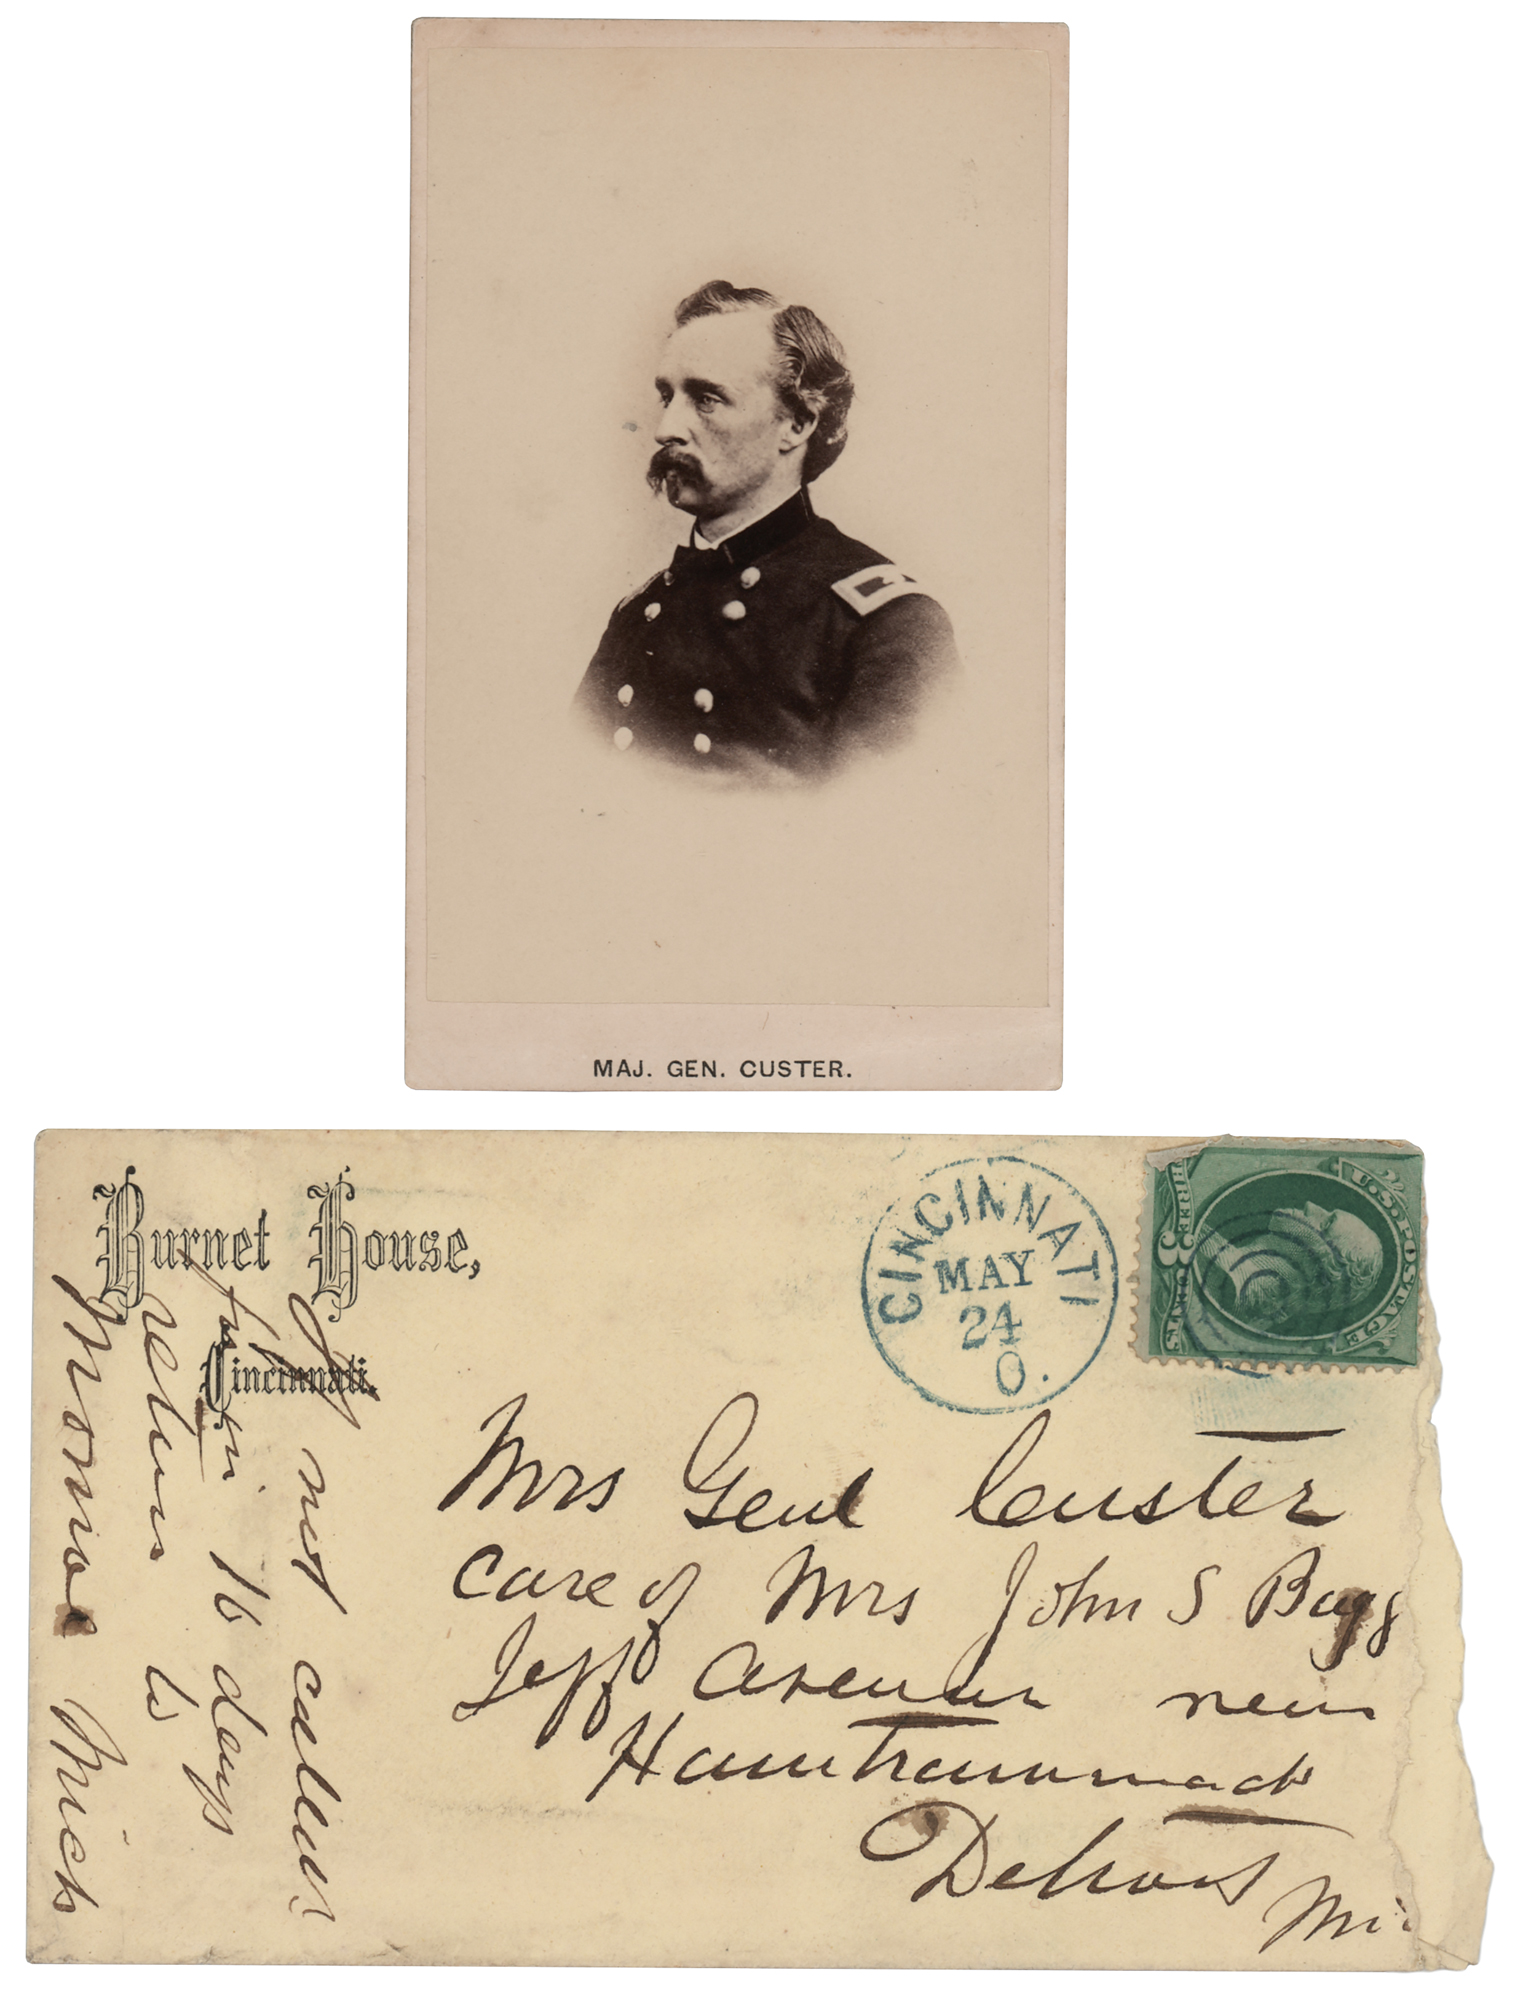 MAJ. GEN. CUSTER.
Burnet House,
Cincinnati.
CINCINNATI
MAY
24
O.
U.S. POSTAGE
THREE 3 CENTS
Mrs Genl Custer
Care of Mrs John S Bagg
Jeff Avenue near
Hamtrammack
Detroit Mi
If not called
for in 10 days
return to
Monroe Mich